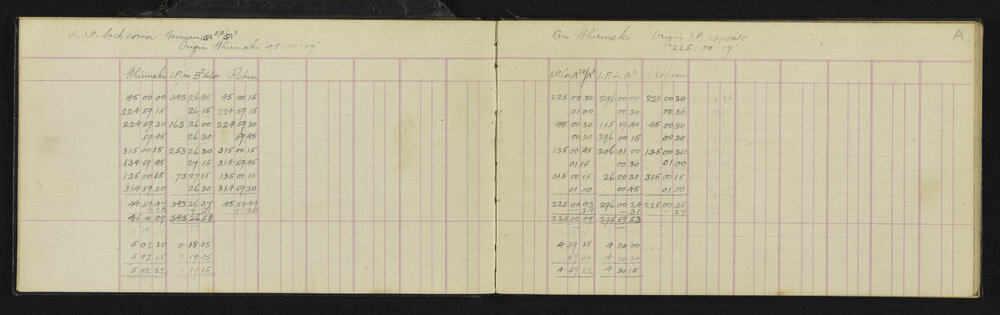 On I.P. back corner
Origin Whirinaki 45:00:09
Whirinaki I.P. in B² Return
45 00 00 343 26 45 45 00 15
224 59 15 26 15 224 59 15
224 59 30 163 26 00 224 59 30
59 45 26 30 59 45
315 00 15 253 26 30 315 00 15
134 59 45 27 15 314 59 45
135 00 15 73 27 15 135 00 15
314 59 30 26 30 314 59 30
44 59 47 343 26 37 45 59 49
45 00 09 343 26 58
5 02 30 0 18 45
5 02 15 0 19 45
5 02 22 0 19 15
On Whirinaki Origin I.P opposite A.
225:00:09
I.P. in B² Return
225 00 30 296 00 00 225 00 30
01 00 00 30 00 30
45 00 30 115 59 45 45 00 30
00 30 296 00 15 00 30
135 00 45 206 01 00 135 00 30
01 15 00 30 01 00
315 00 15 26 00 30 315 00 15
01 00 00 45 01 00
225 00 43 296 00 24 225 00 36
-34 -31 -27
225 00 09 295 59 53
4 59 15 4 30 00
59 30 4 30 30
4 59 22 4 30 15